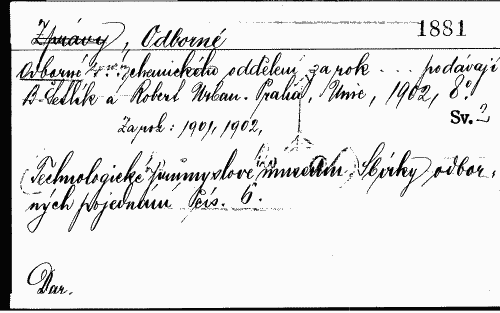 1881
Zprávy, Odborné
Odborné z. chemického oddělení za rok ... podávají
B. Setlík a Robert Urban. Praha, Unie, 1902, 8°.
Sv. 2
Za rok: 1901, 1902,
(Technologické průmyslové museum) Sbírky odbor-
ných pojednání Čís. 6.
Dar.